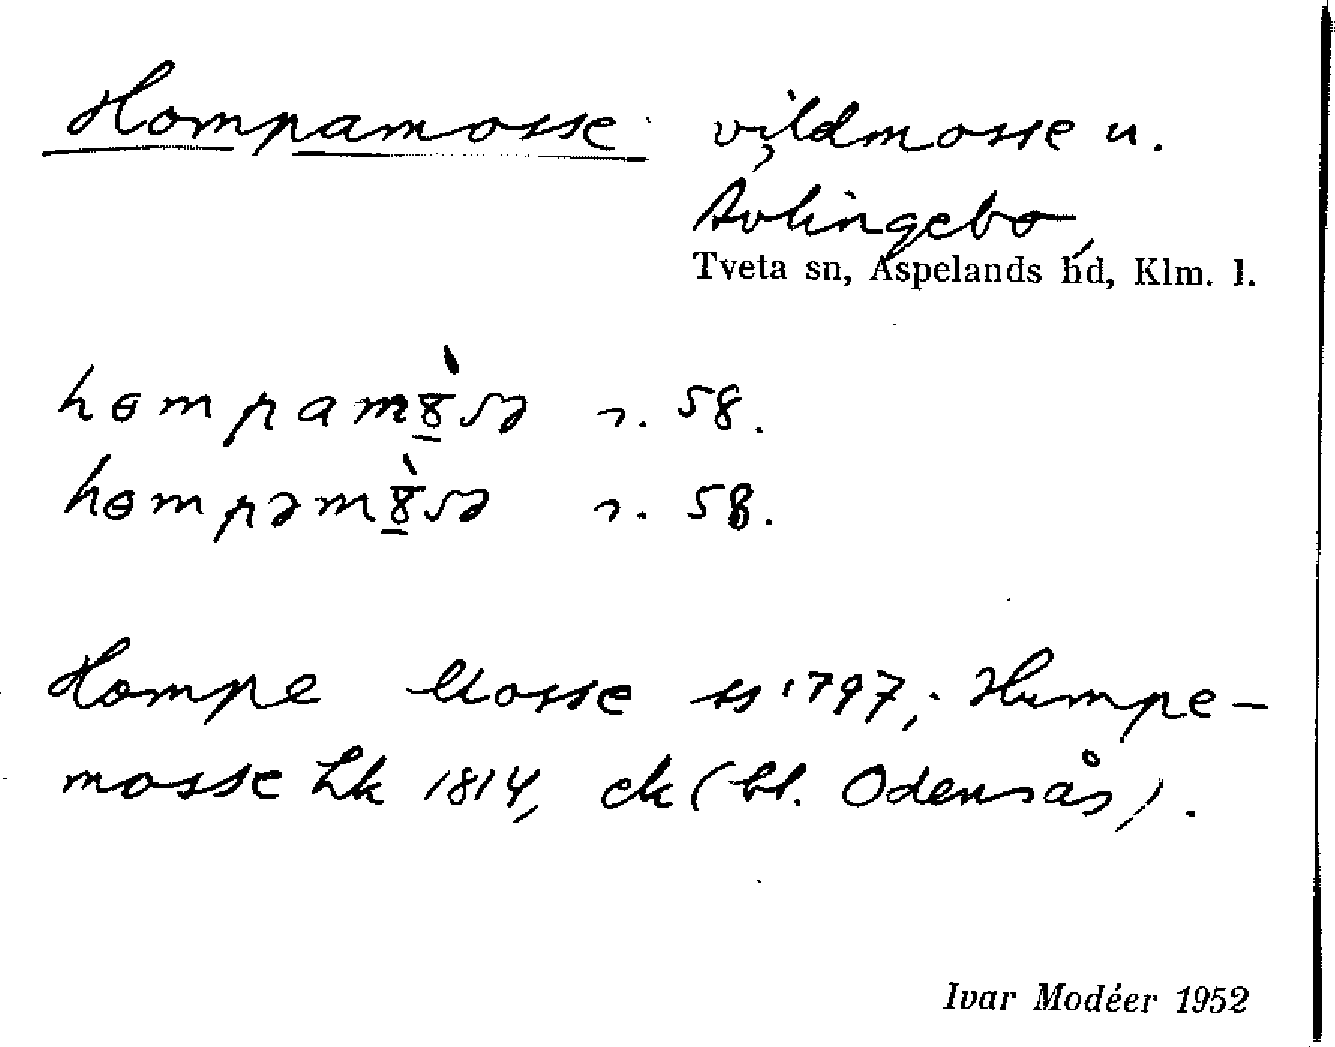 Hompamosse vildmosse u.
Avlingebo,
Tveta sn, Aspelands hd, Klm. l.
r. 58.
r. 58.
Hompe Mosse ss 1797; Humpe-
mosse Lk 1814, ek (bl. Odensås).
Ivar Modéer 1952